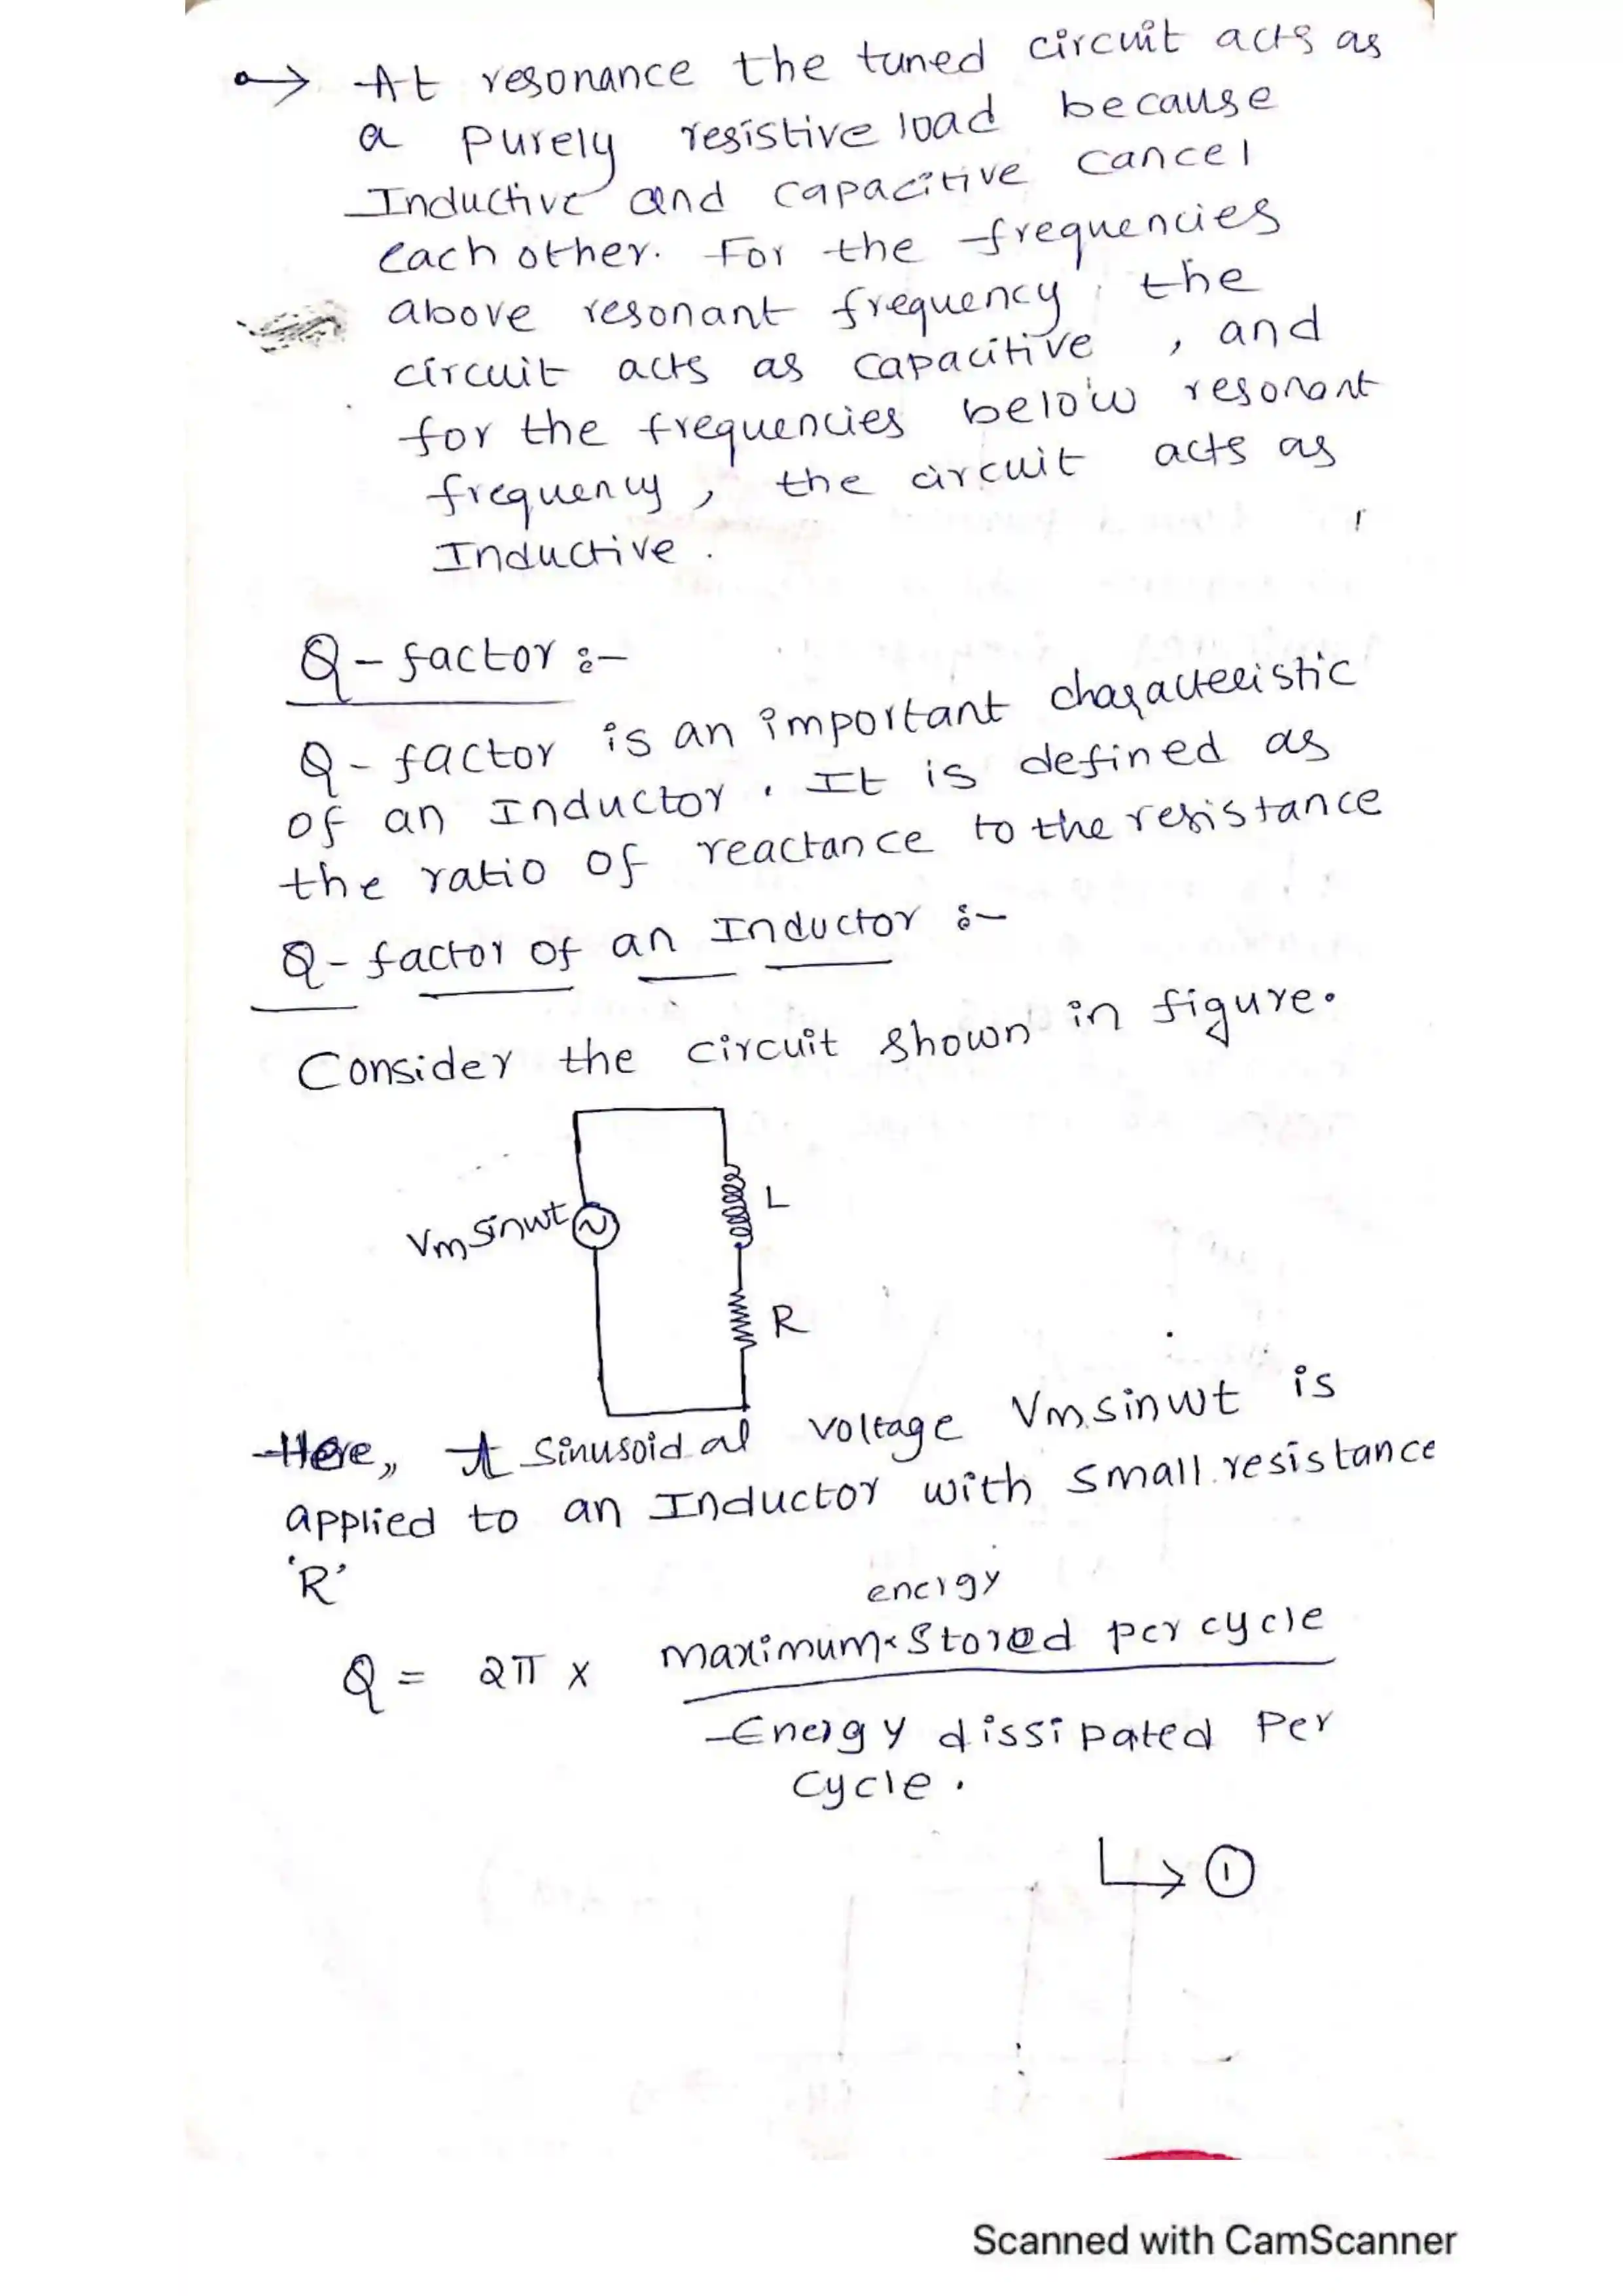 → At resonance the tuned circuit acts as
a purely resistive load because
Inductive and capacitive cancel
each other. For the frequencies
above resonant frequency, the
circuit acts as capacitive, and
for the frequencies below resonant
frequency, the circuit acts as
Inductive.
Q-factor :-
Q-factor is an important characteristic
of an Inductor. It is defined as
the ratio of reactance to the resistance
Q-factor of an Inductor :-
Consider the circuit shown in figure.
L
Vm sinwt
R
Here,, A sinusoidal voltage Vm sinwt is
applied to an Inductor with small resistance
'R'
energy
Q = 2π x maximum stored per cycle
Energy dissipated per
cycle.
↳ ①
Scanned with CamScanner